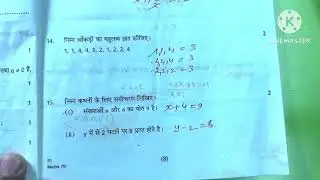 14. निम्न आँकड़ों का बहुलक ज्ञात कीजिए।
2
1, 1, 4, 4, 3, 2, 1, 2, 2, 4
1,1,1 = 3
4,4,4 = 3
2,2,2 = 3
15. निम्न कथनों के लिए समीकरण लिखिए।
2
(i) संख्याओं x और 4 का योग 9 है। x+4=9
(ii) y में से 2 घटाने पर 8 प्राप्त होते हैं। y-2=8
(3)
KINEMASTER